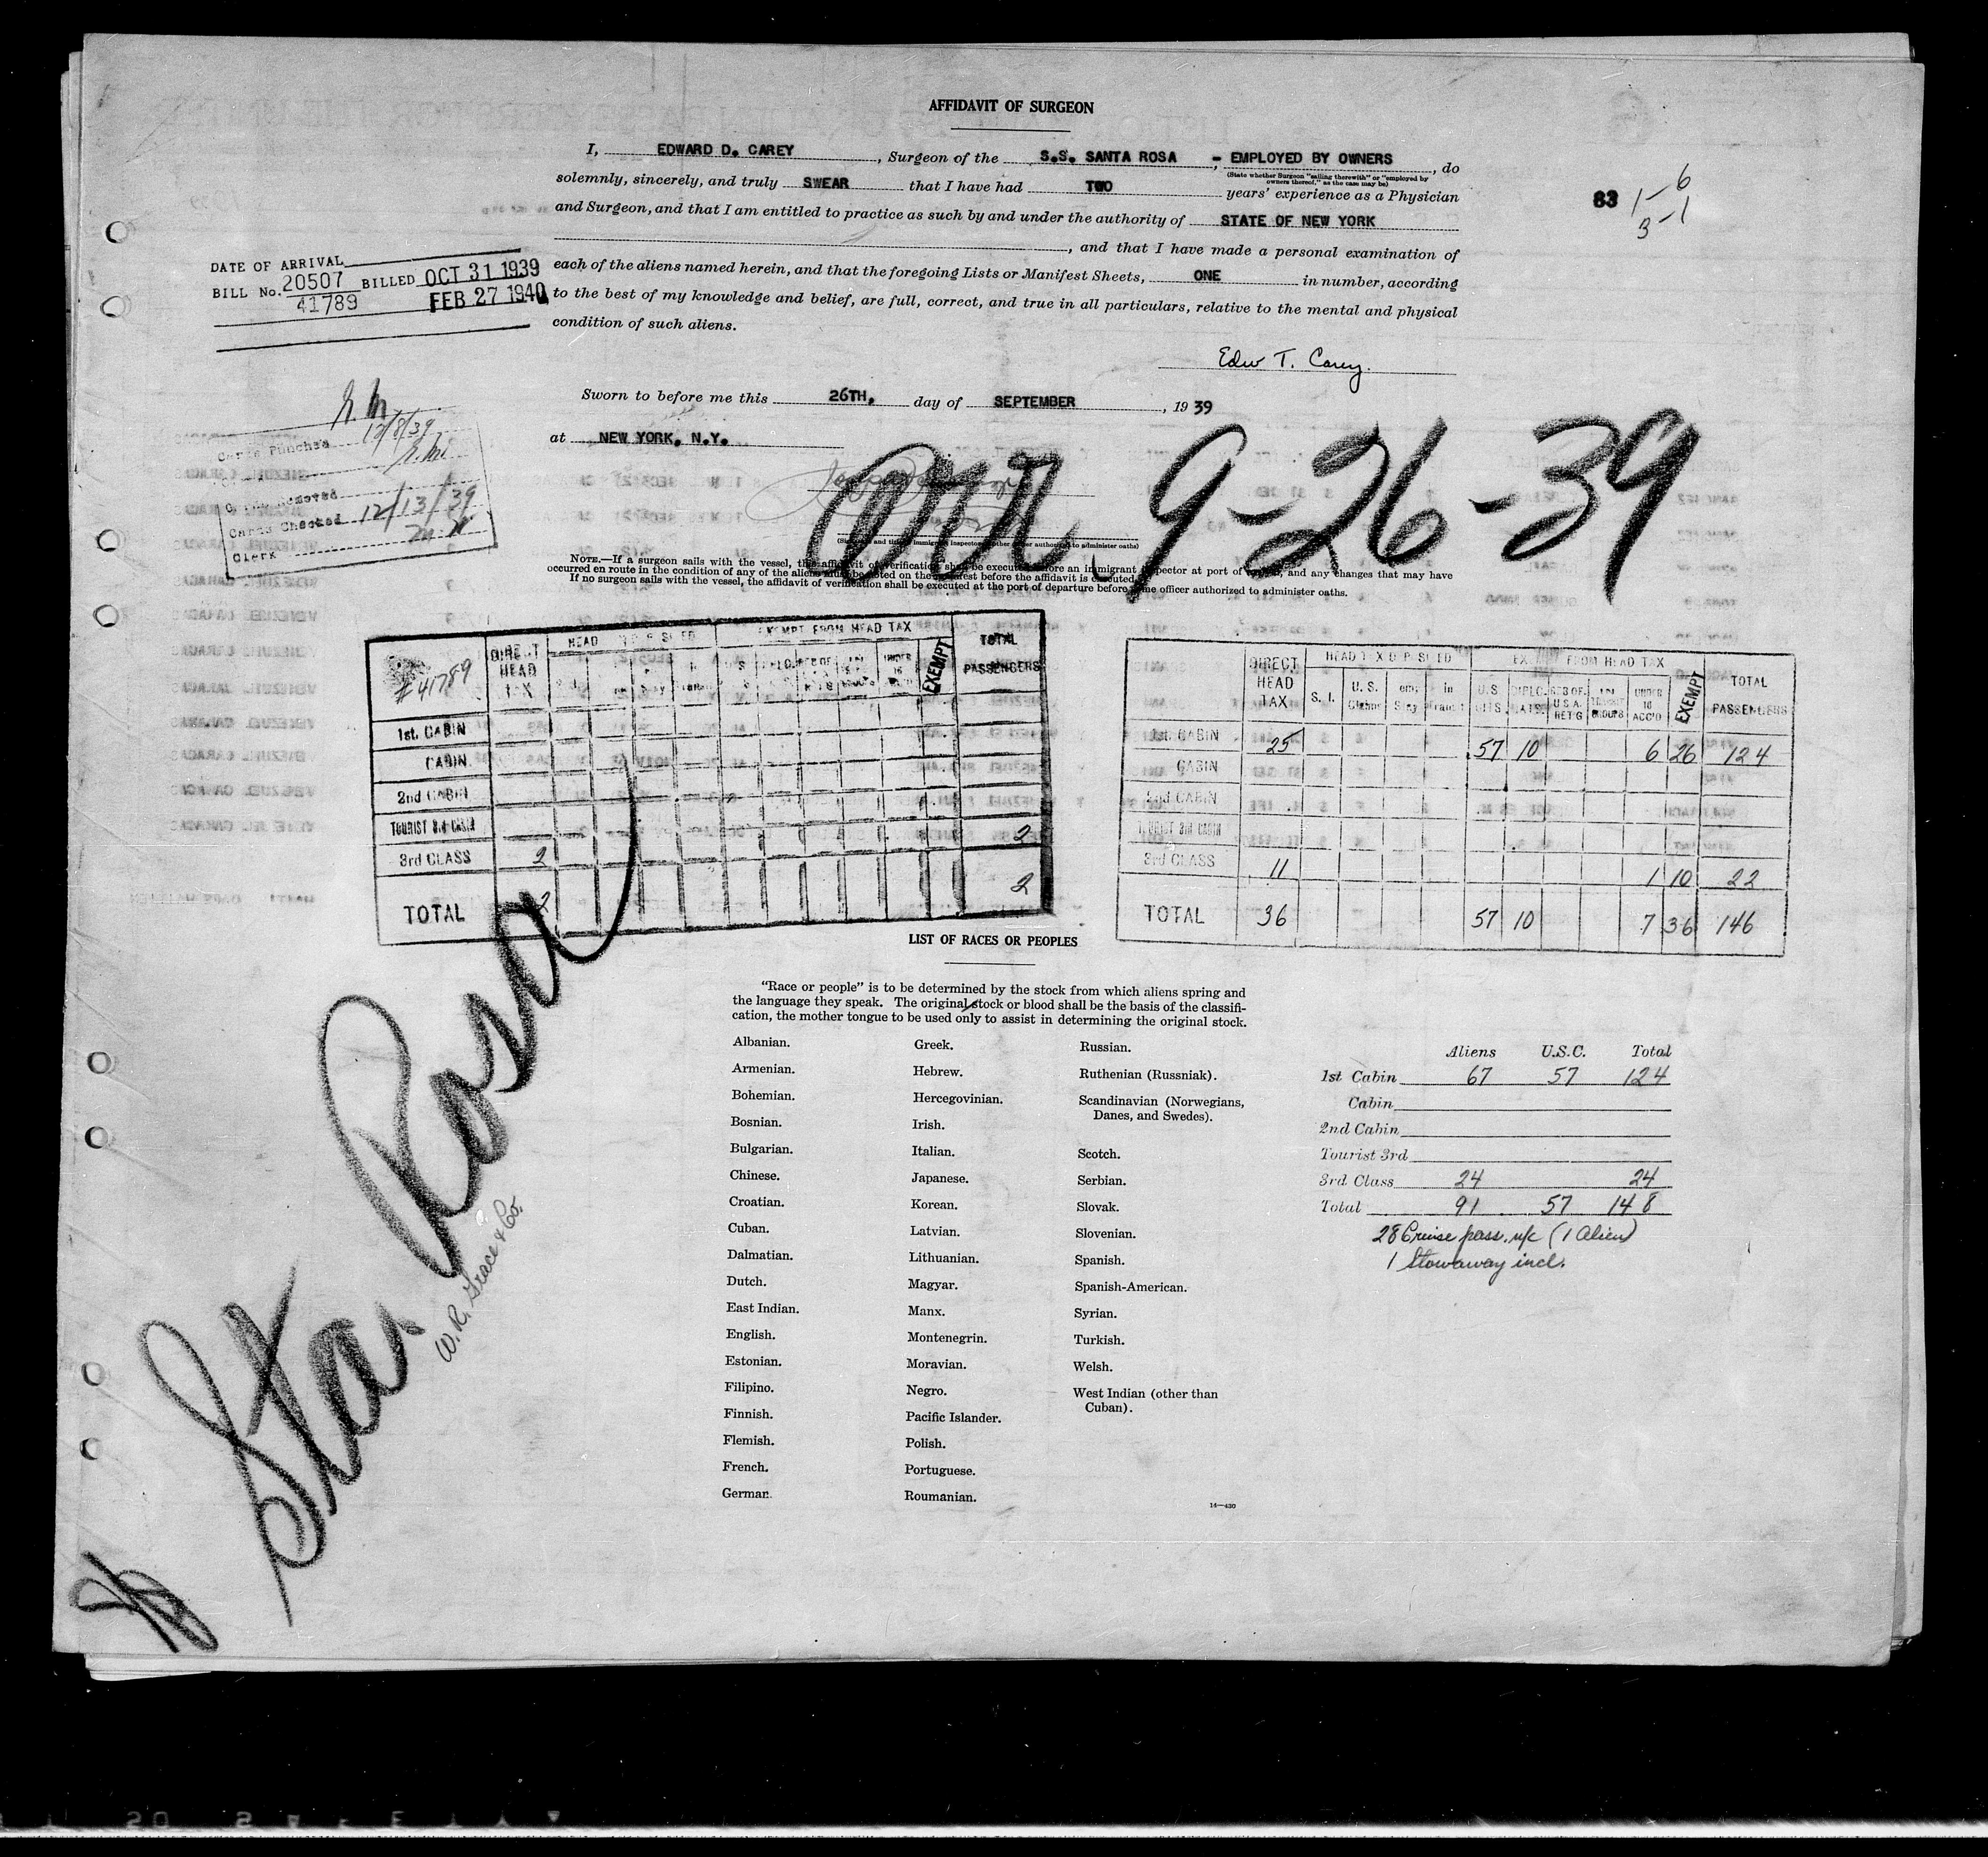 AFFIDAVIT OF SURGEON
I, EDWARD D. CAREY, Surgeon of the S.S. SANTA ROSA, - EMPLOYED BY OWNERS, do
(State whether Surgeon "sailing therewith" or "employed by
owners thereof," as the case may be)
solemnly, sincerely, and truly SWEAR that I have had TWO years' experience as a Physician
and Surgeon, and that I am entitled to practice as such by and under the authority of STATE OF NEW YORK
, and that I have made a personal examination of
each of the aliens named herein, and that the foregoing Lists or Manifest Sheets, ONE in number, according
to the best of my knowledge and belief, are full, correct, and true in all particulars, relative to the mental and physical
condition of such aliens.
83
1-6
3-1
DATE OF ARRIVAL
BILL No. 20507 BILLED OCT 31 1939
41789 FEB 27 1940
Edw T. Carey.
Sworn to before me this 26TH, day of SEPTEMBER, 1939
at NEW YORK, N.Y.
Cards Punched 12/8/39
Cards Checked 12/13/39
Clerk
arr. 9-26-39
NOTE.—If a surgeon sails with the vessel, this affidavit of verification shall be executed before an immigrant inspector at port of and any changes that may have
occurred en route in the condition of any of the aliens must be noted on the manifest before the affidavit is executed.
If no surgeon sails with the vessel, the affidavit of verification shall be executed at the port of departure before some officer authorized to administer oaths.
#41789
DIRECT HEAD TAX
HEAD
EXEMPT FROM HEAD TAX
EXEMPT
TOTAL PASSENGERS
1st. CABIN
CABIN
2nd CABIN
TOURIST 3rd CABIN 2
3rd CLASS 2
TOTAL 2 2
DIRECT HEAD TAX
HEAD TAX DEPOSITED
FROM HEAD TAX
TOTAL PASSENGERS
S. I.
U. S.
in
U.S. CITS.
DIPLOMATS
RES OF U.S.A. RET'G
UNDER 16 ACC'D
EXEMPT
1st. CABIN 25 57 10 6 26 124
CABIN
2nd CABIN
TOURIST 3rd CABIN
3rd CLASS 11 1 10 22
TOTAL 36 57 10 7 36 146
LIST OF RACES OR PEOPLES
"Race or people" is to be determined by the stock from which aliens spring and
the language they speak. The original stock or blood shall be the basis of the classifi-
cation, the mother tongue to be used only to assist in determining the original stock.
Albanian.
Armenian.
Bohemian.
Bosnian.
Bulgarian.
Chinese.
Croatian.
Cuban.
Dalmatian.
Dutch.
East Indian.
English.
Estonian.
Filipino.
Finnish.
Flemish.
French.
German.
Greek.
Hebrew.
Hercegovinian.
Irish.
Italian.
Japanese.
Korean.
Latvian.
Lithuanian.
Magyar.
Manx.
Montenegrin.
Moravian.
Negro.
Pacific Islander.
Polish.
Portuguese.
Roumanian.
Russian.
Ruthenian (Russniak).
Scandinavian (Norwegians,
Danes, and Swedes).
Scotch.
Serbian.
Slovak.
Slovenian.
Spanish.
Spanish-American.
Syrian.
Turkish.
Welsh.
West Indian (other than
Cuban).
14—430
Aliens U.S.C. Total
1st Cabin 67 57 124
Cabin
2nd Cabin
Tourist 3rd
3rd. Class 24 24
Total 91 57 148
28 Cruise pass. n/c (1 Alien)
1 Stowaway incl.
Sta. Rosa
W. R. Grace & Co.